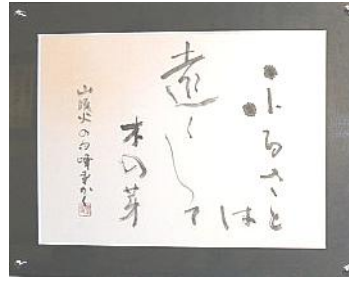 ふるさとは
遠くして
木の芽
山頭火の句